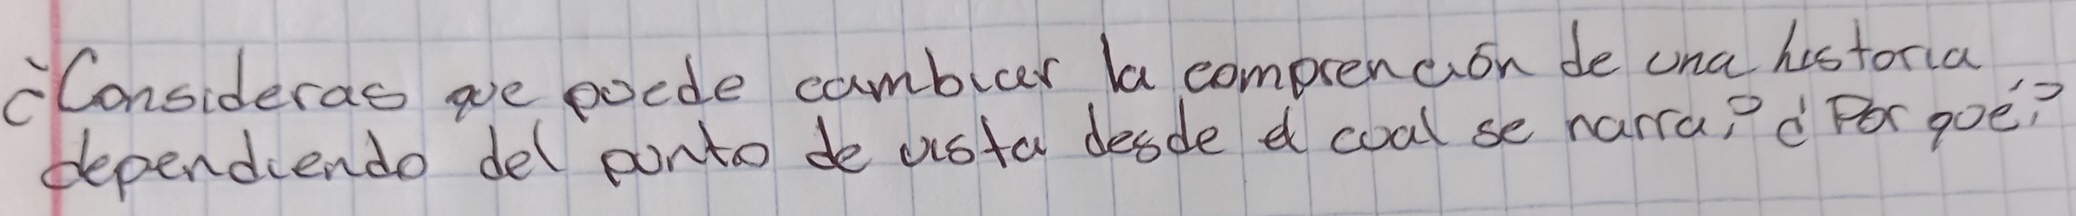 ¿Consideras que puede cambiar la comprención de una historia
dependiendo del punto de vista desde el cual se narra? ¿Por qué?